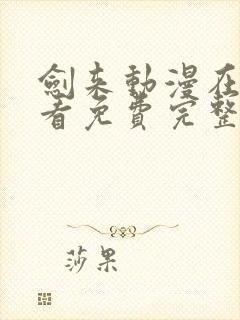 劍来動漫在
看免費完整
莎果